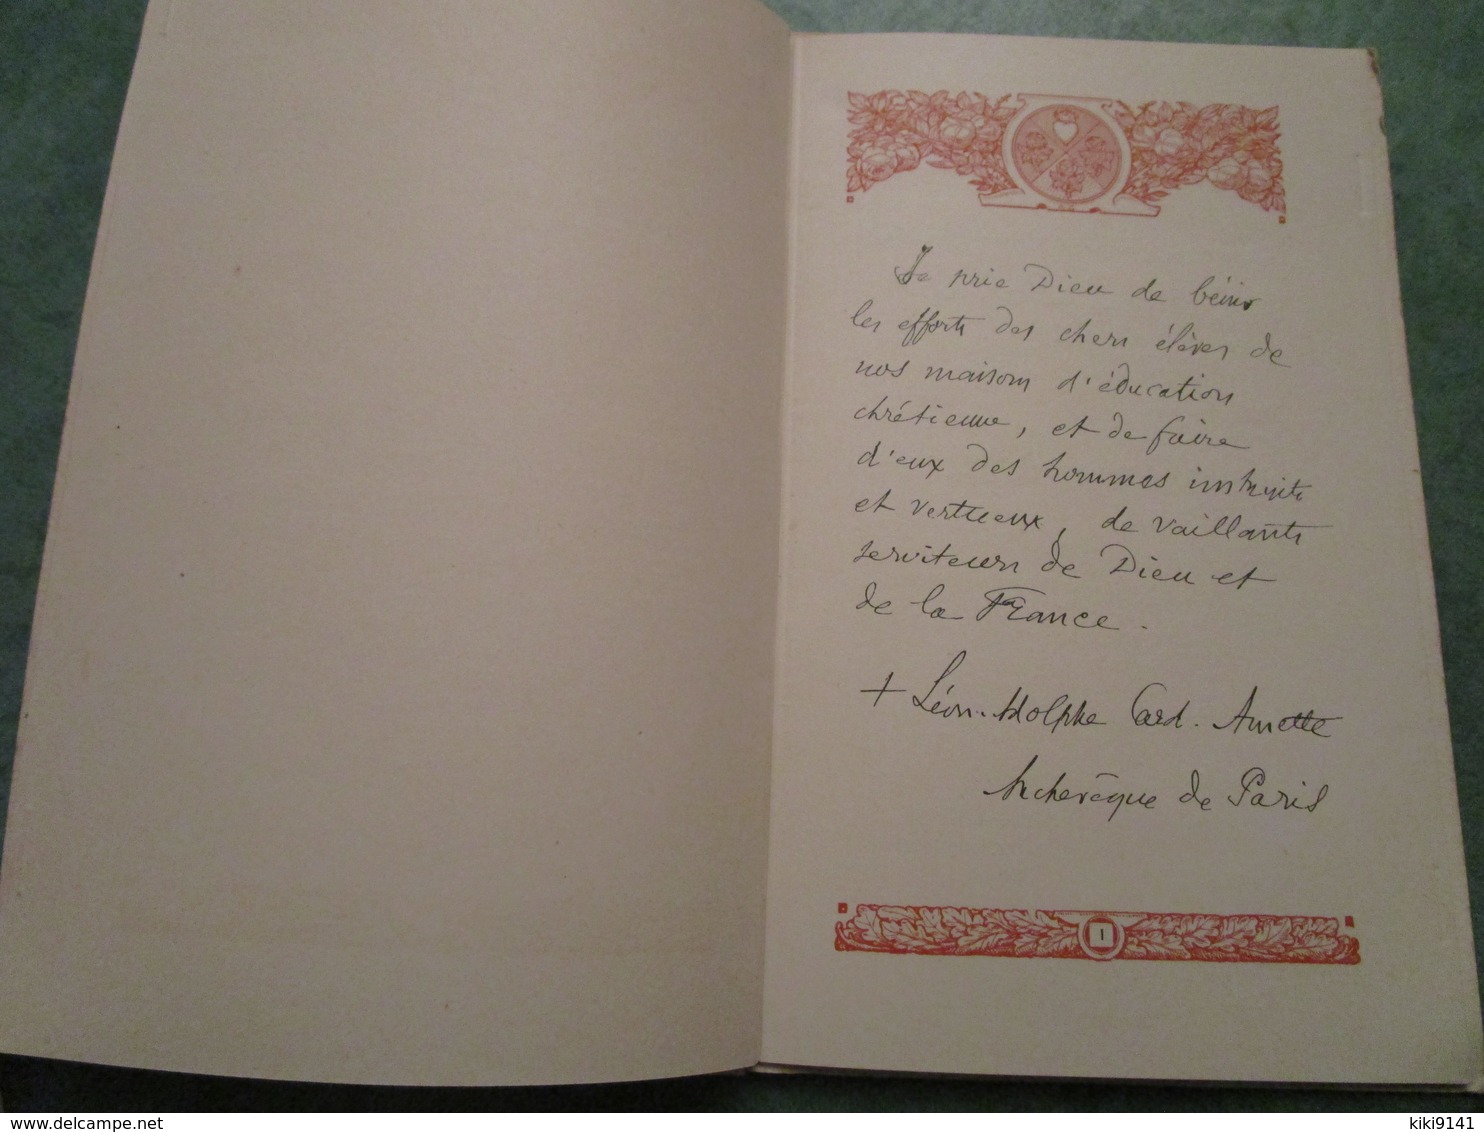 Je prie Dieu de bénir
les efforts des chers élèves de
nos maisons d'éducation
chrétienne, et de faire
d'eux des hommes instruits
et vertueux, de vaillants
serviteurs de Dieu et
de la France.
+ Léon-Adolphe Card. Amette
Archevêque de Paris
1
www.delcampe.net
kiki9141